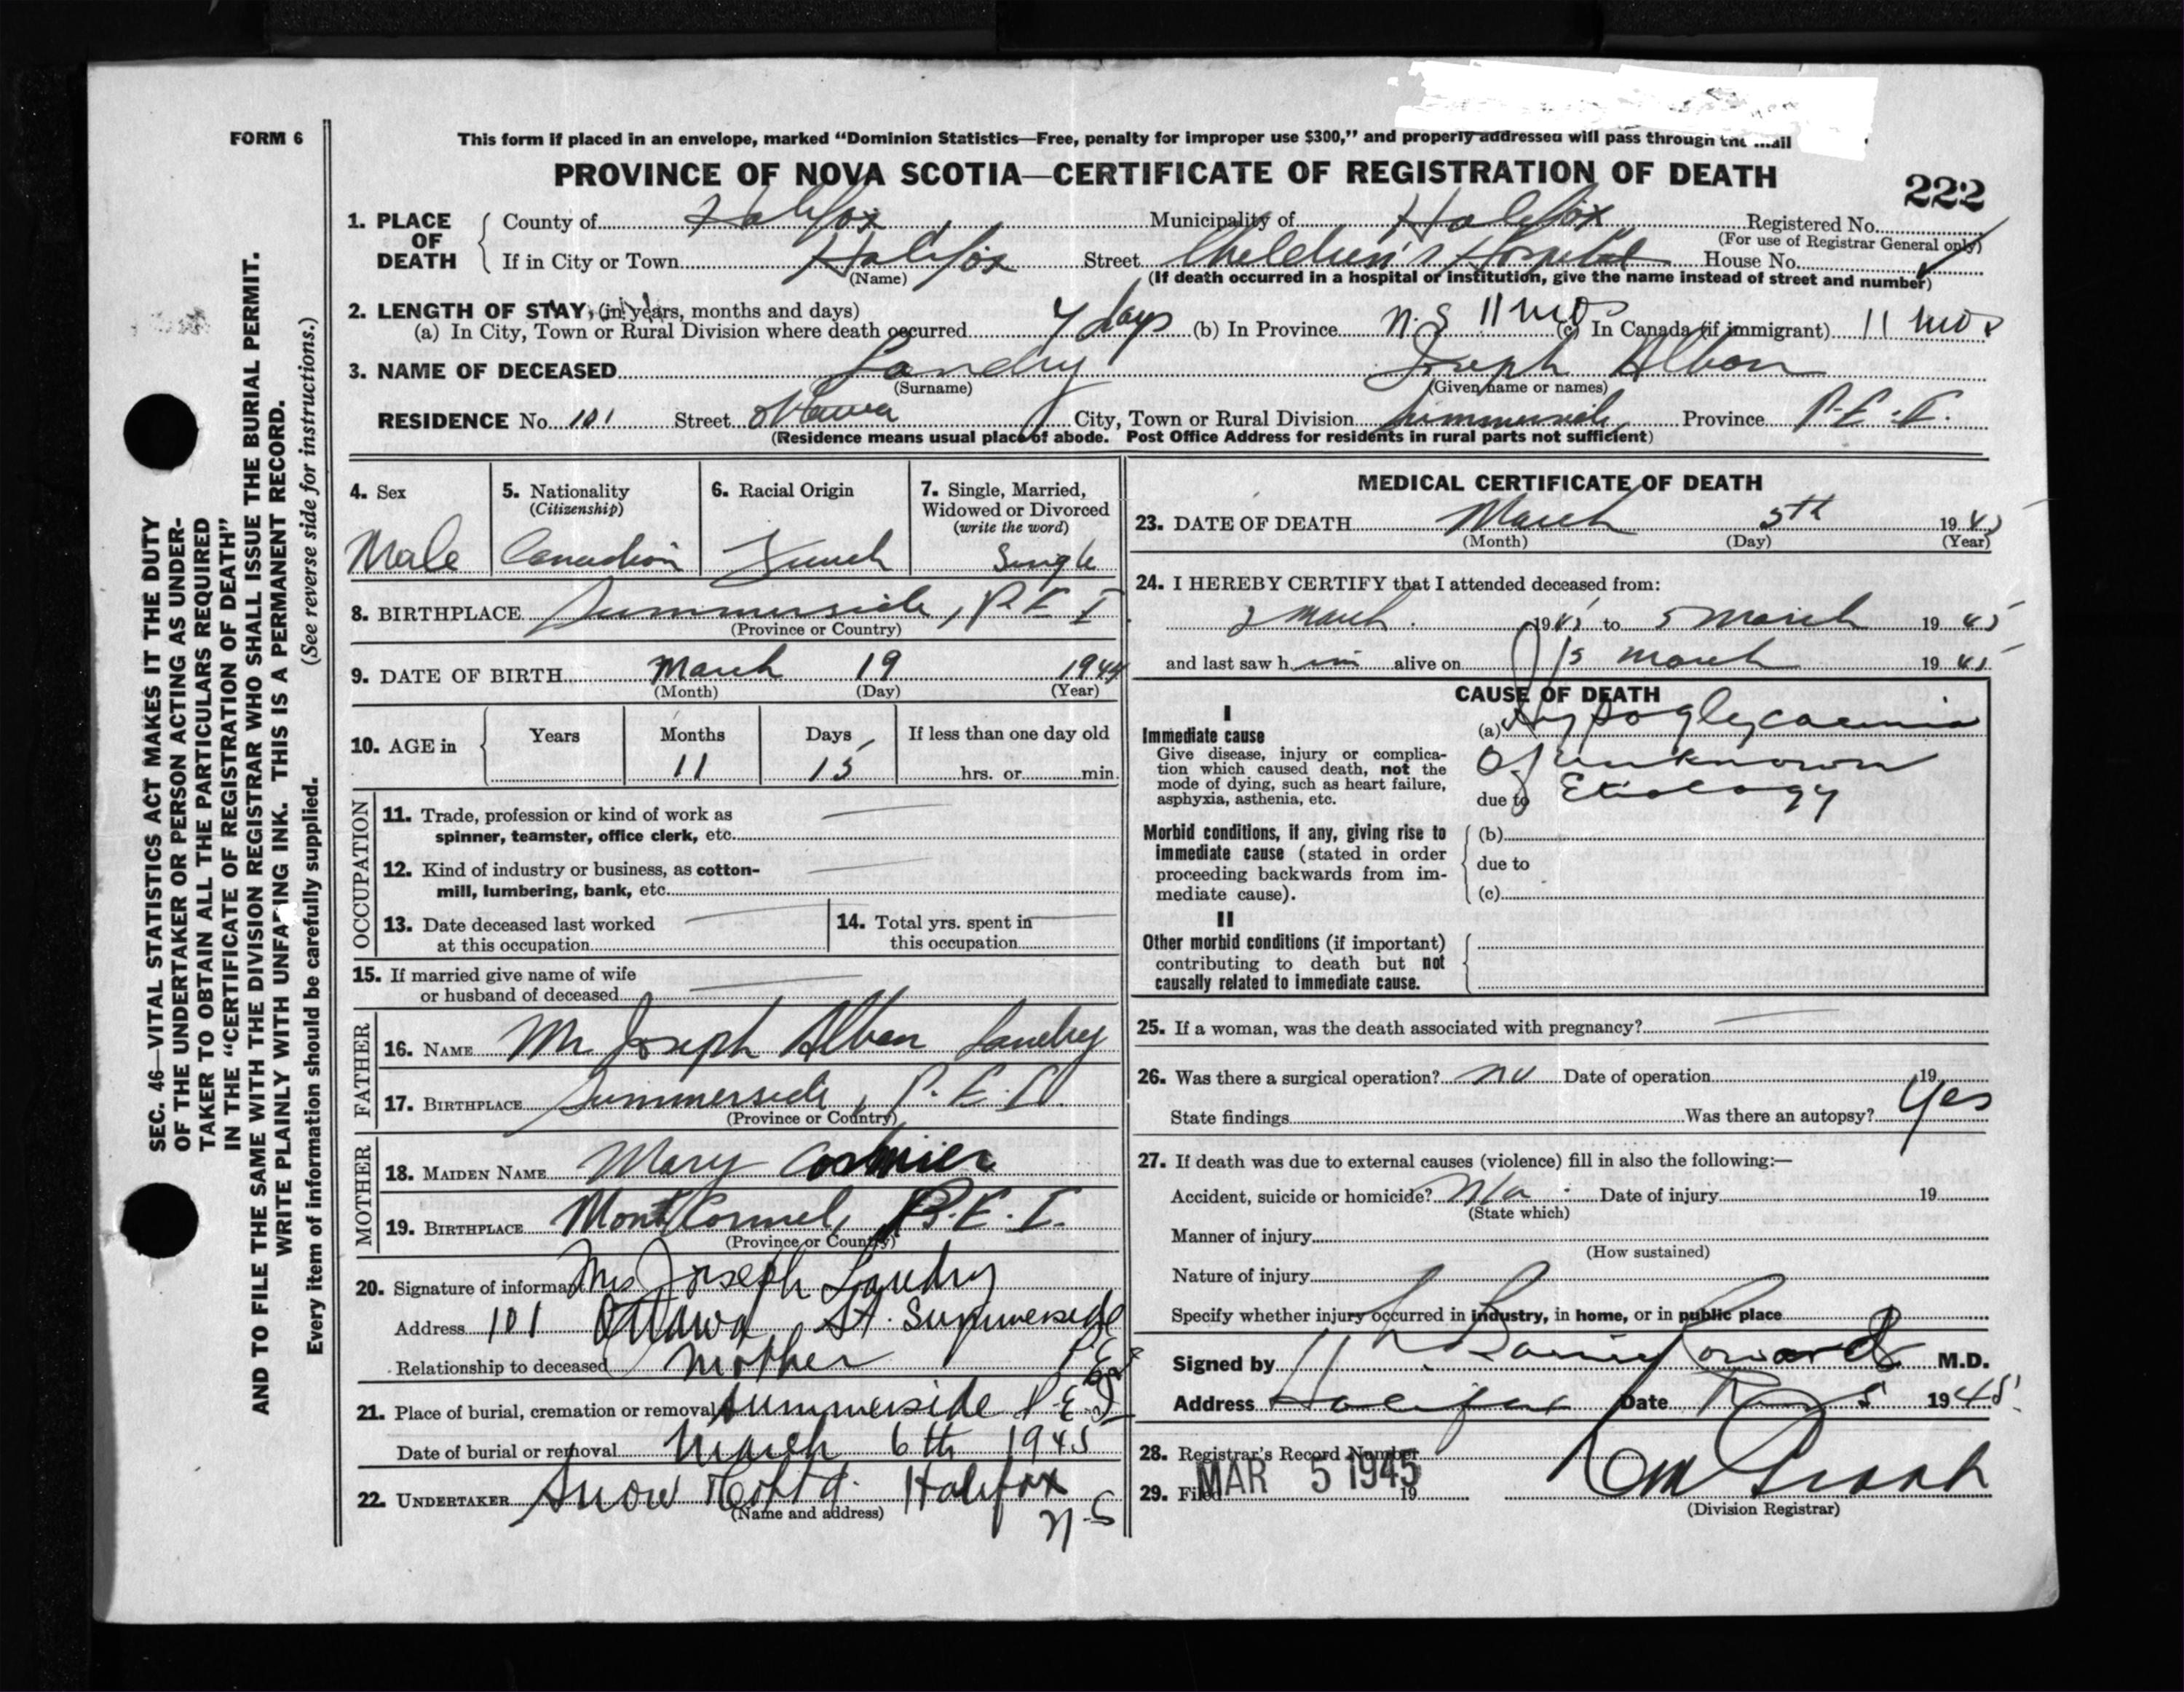 FORM 6
This form if placed in an envelope, marked “Dominion Statistics—Free, penalty for improper use $300,” and properly addressed will pass through
PROVINCE OF NOVA SCOTIA—CERTIFICATE OF REGISTRATION OF DEATH
222
1. PLACE OF DEATH
County of Halifax Municipality of Halifax Registered No.
(For use of Registrar General only)
If in City or Town Halifax Street Children's Hospital House No.
(Name) (If death occurred in a hospital or institution, give the name instead of street and number)
2. LENGTH OF STAY, (in years, months and days)
(a) In City, Town or Rural Division where death occurred days (b) In Province N.S 11 mos (c) In Canada (if immigrant) 11 mos
3. NAME OF DECEASED Landry Joseph Alban
(Surname) (Given name or names)
RESIDENCE No. 101 Street Ottawa City, Town or Rural Division Summerside, Province P.E.I.
(Residence means usual place of abode. Post Office Address for residents in rural parts not sufficient)
4. Sex
Male
5. Nationality
(Citizenship)
Canadian
6. Racial Origin
French
7. Single, Married,
Widowed or Divorced
(write the word)
Single
8. BIRTHPLACE Summerside, P.E.I.
(Province or Country)
9. DATE OF BIRTH March 19 1944
(Month) (Day) (Year)
10. AGE in
Years Months Days If less than one day old
11 15 hrs. or min.
OCCUPATION
11. Trade, profession or kind of work as
spinner, teamster, office clerk, etc.
12. Kind of industry or business, as cotton-
mill, lumbering, bank, etc.
13. Date deceased last worked
at this occupation
14. Total yrs. spent in
this occupation
15. If married give name of wife
or husband of deceased
FATHER
16. NAME Mr. Joseph Alban Landry
17. BIRTHPLACE Summerside, P.E.I.
(Province or Country)
MOTHER
18. MAIDEN NAME Mary Cormier
19. BIRTHPLACE Mont Carmel, P.E.I.
(Province or Country)
20. Signature of informant Mrs Joseph Landry
Address 101 Ottawa St. Summerside
Relationship to deceased Mother P.E.I.
21. Place of burial, cremation or removal Summerside P.E.I
Date of burial or removal March 6th 1945
22. UNDERTAKER Snow & Co Ltd. Halifax
(Name and address)
N.S
MEDICAL CERTIFICATE OF DEATH
23. DATE OF DEATH March 5th 1945
(Month) (Day) (Year)
24. I HEREBY CERTIFY that I attended deceased from:
2 March. 1945 to 5 March 1945
and last saw h im alive on 5 March 1945
CAUSE OF DEATH
I
Immediate cause
Give disease, injury or complica-
tion which caused death, not the
mode of dying, such as heart failure,
asphyxia, asthenia, etc.
(a) Hypoglycaemia
of unknown
due to Etiology
Morbid conditions, if any, giving rise to
immediate cause (stated in order
proceeding backwards from im-
mediate cause).
(b)
due to
(c)
II
Other morbid conditions (if important)
contributing to death but not
causally related to immediate cause.
25. If a woman, was the death associated with pregnancy?
26. Was there a surgical operation? no Date of operation 19
State findings Was there an autopsy? Yes
27. If death was due to external causes (violence) fill in also the following:—
Accident, suicide or homicide? N/a Date of injury 19
(State which)
Manner of injury
(How sustained)
Nature of injury
Specify whether injury occurred in industry, in home, or in public place
Signed by M.D.
Address Halifax Date 5 1945
28. Registrar's Record Number
29. Filed MAR 5 1945 19
(Division Registrar)
SEC. 46—VITAL STATISTICS ACT MAKES IT THE DUTY
OF THE UNDERTAKER OR PERSON ACTING AS UNDER-
TAKER TO OBTAIN ALL THE PARTICULARS REQUIRED
IN THE “CERTIFICATE OF REGISTRATION OF DEATH”
AND TO FILE THE SAME WITH THE DIVISION REGISTRAR WHO SHALL ISSUE THE BURIAL PERMIT.
WRITE PLAINLY WITH UNFADING INK. THIS IS A PERMANENT RECORD.
Every item of information should be carefully supplied. (See reverse side for instructions.)